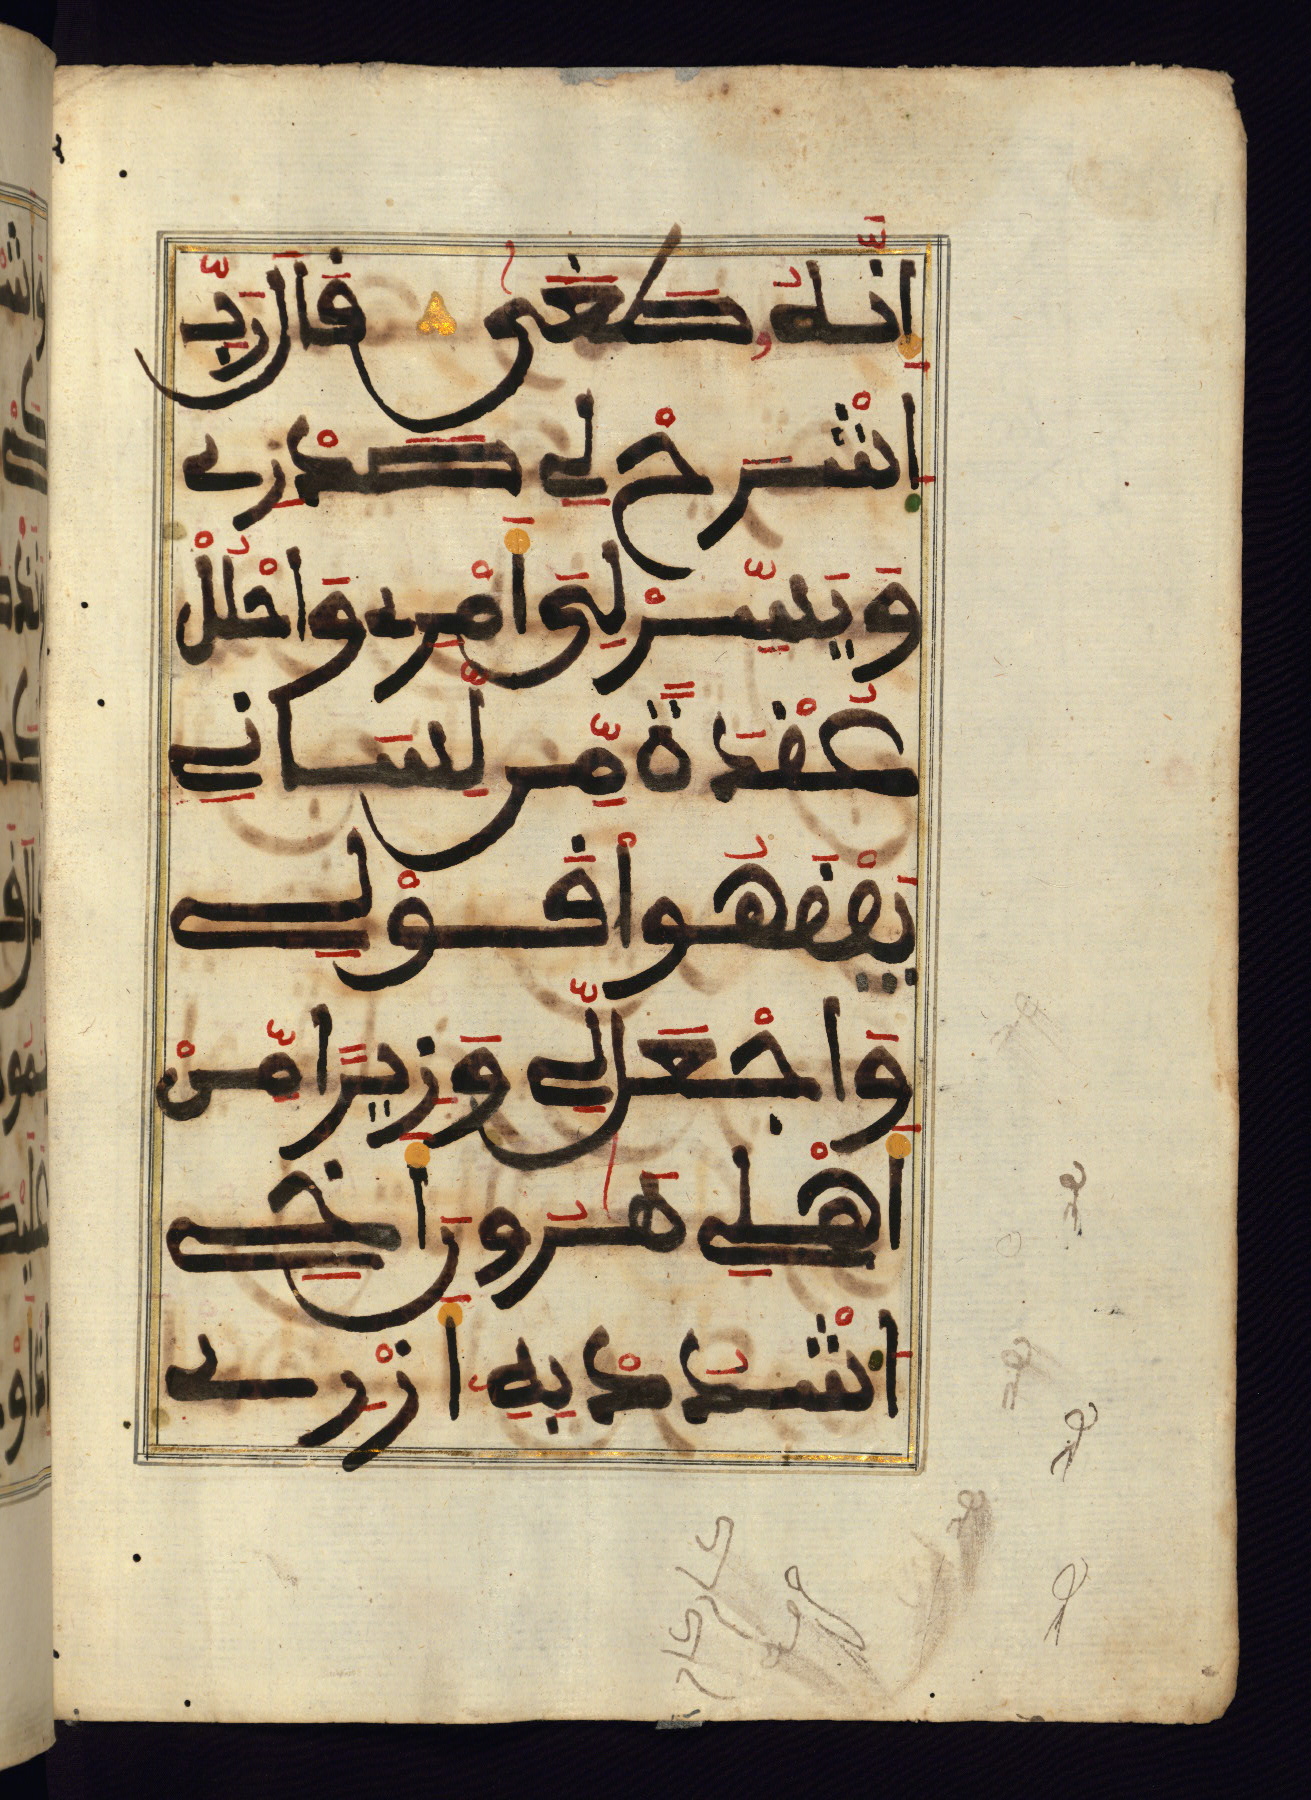 إِنَّهُۥ طَغَىٰ قَالَ رَبِّ
اِشْرَحْ لِي صَدْرِے
وَيَسِّرْ لِيَ أَمْرِے وَاحْلُلْ
عُقْدَةً مِّن لِّسَانِي
يَفْقَهُواْ قَوْلِي
وَاجْعَل لِّي وَزِيرًا مِّنْ
أَهْلِي هَٰرُونَ أَخِي
اَشْدُدْ بِهِۦ أَزْرِے